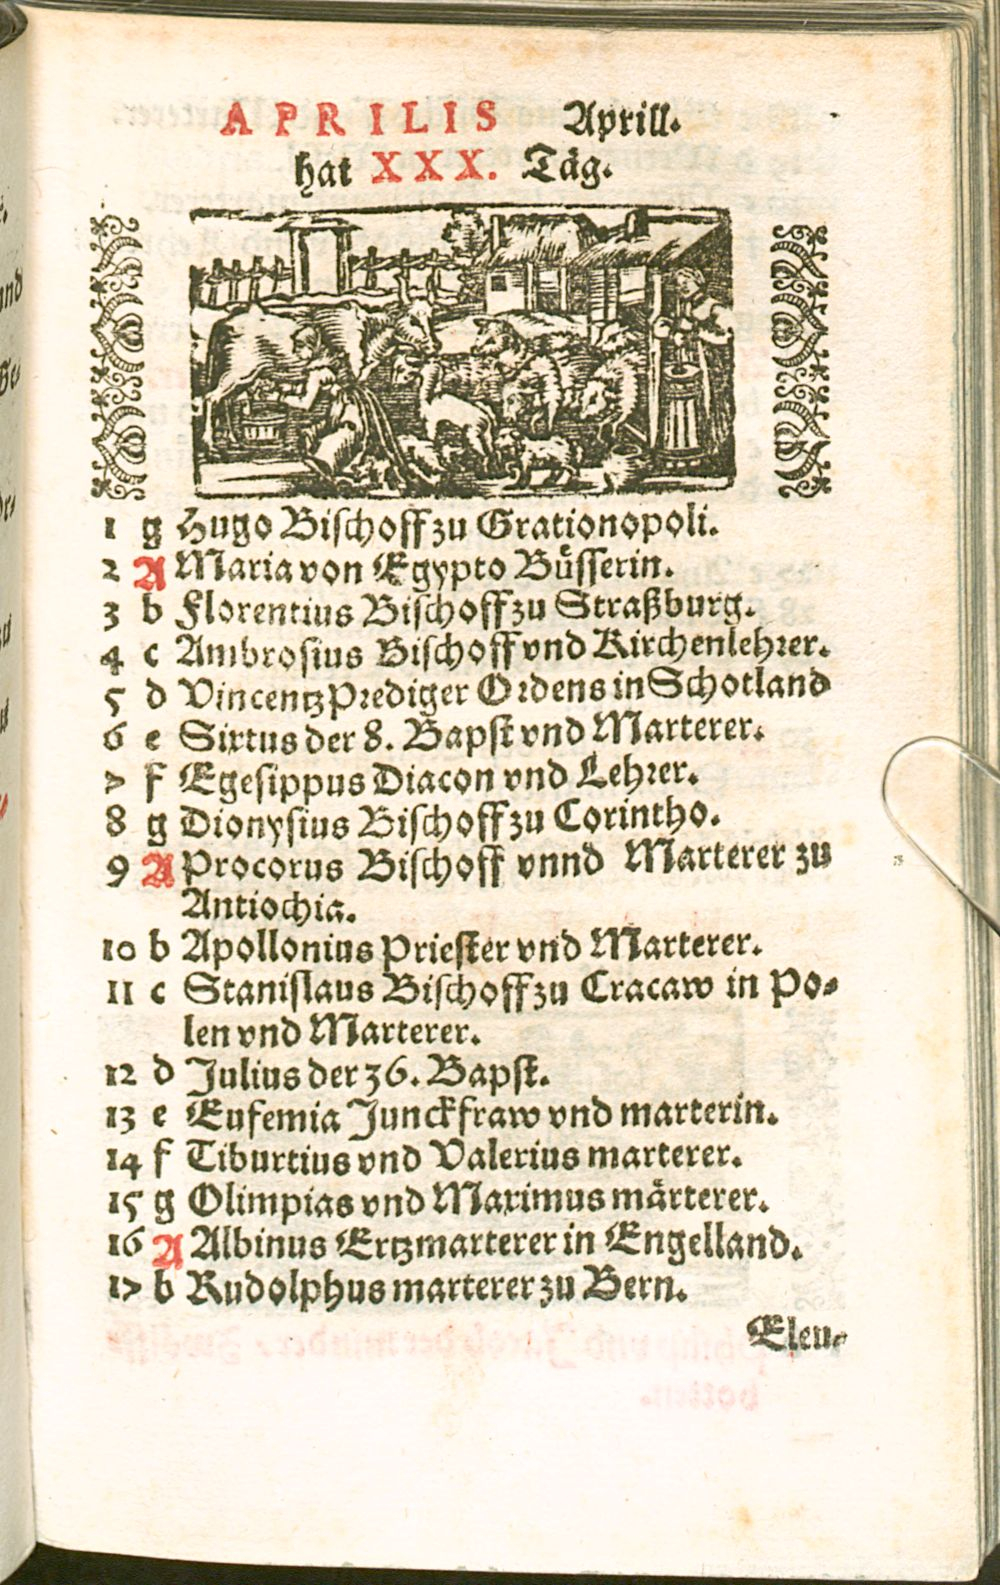 APRILIS Aprill.
hat XXX. Täg.
1 g Hugo Bischoff zu Grationopoli.
2 A Maria von Egypto Büsserin.
3 b Florentius Bischoff zu Straßburg.
4 c Ambrosius Bischoff vnd Kirchenlehrer.
5 d Vincentz Prediger Ordens in Schotland
6 e Sixtus der 8. Bapst vnd Marterer.
7 f Egesippus Diacon vnd Lehrer.
8 g Dionysius Bischoff zu Corintho.
9 A Procorus Bischoff vnnd Marterer zu
Antiochia.
10 b Apollonius Priester vnd Marterer.
11 c Stanislaus Bischoff zu Cracaw in Po-
len vnd Marterer.
12 d Julius der 36. Bapst.
13 e Eufemia Junckfraw vnd marterin.
14 f Tiburtius vnd Valerius marterer.
15 g Olimpias vnd Maximus märterer.
16 A Albinus Ertzmarterer in Engelland.
17 b Rudolphus marterer zu Bern.
Eleu-